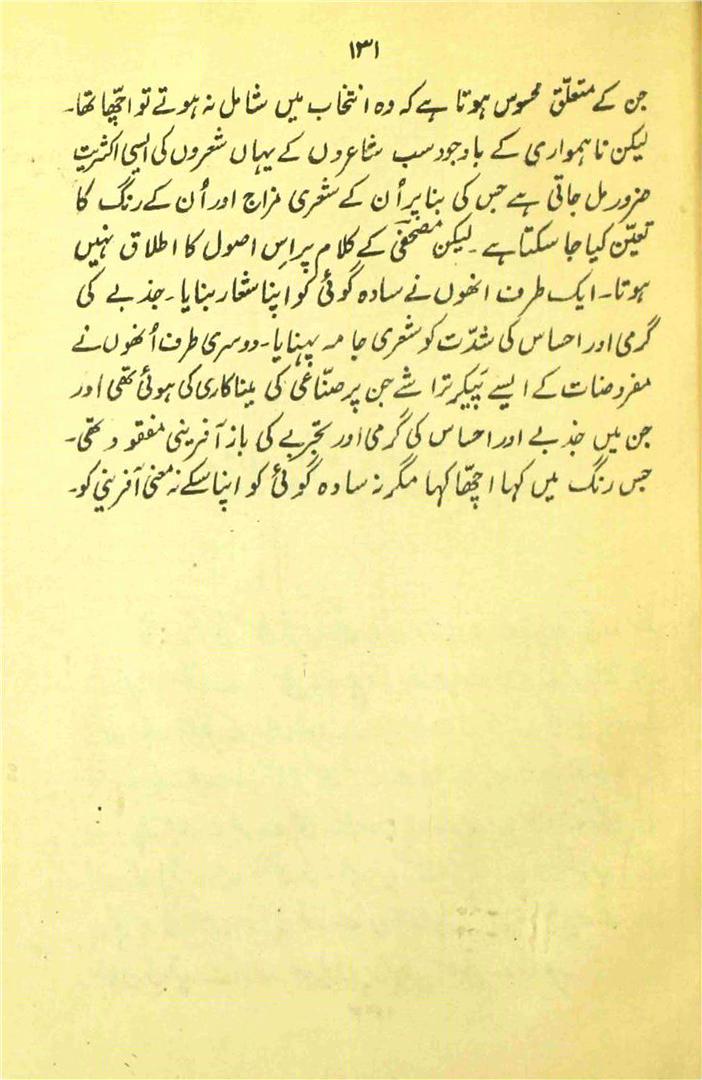 ۱۳۱
جن کے متعلّق محسوس ہوتا ہے کہ وہ انتخاب میں شامل نہ ہوتے تو اچھّا تھا۔
لیکن ناہمواری کے باوجود سب شاعروں کے یہاں شعروں کی ایسی اکثریت
ضرور مل جاتی ہے جس کی بنا پر اُن کے شعری مزاج اور اُن کے رنگ کا
تعیّن کیا جا سکتا ہے۔ لیکن مصحفیؔ کے کلام پر اِس اصول کا اطلاق نہیں
ہوتا۔ ایک طرف انھوں نے سادہ گوئی کو اپنا شعار بنایا۔ جذبے کی
گرمی اور احساس کی شدّت کو شعری جامہ پہنایا۔ دوسری طرف اُنھوں نے
مفروضات کے ایسے پَیکر تراشے جن پر صنّاعی کی میناکاری کی ہوئی تھی اور
جن میں جذبے اور احساس کی گرمی اور تجربے کی باز آفرینی مفقود تھی۔
جس رنگ میں کہا اچھّا کہا مگر نہ سادہ گوئی کو اپنا سکے نہ معنی آفرینی کو۔